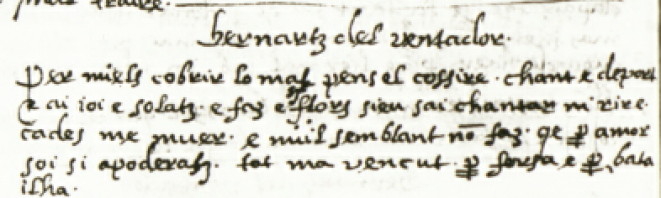 bernartz del ventador.
Per miels cobrir lo mal pens el cossire. chant e deport
e ai ioi e solatz. e faz esflors sieu sai chantar ni rire
cades me muer. e nuil semblant nō faz. qe p̱ amor
soi si apoderatz. tot ma vencut. p̱ forsa e p̱ bata
ilha.